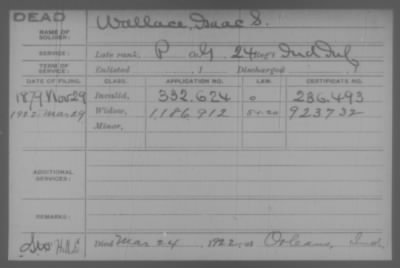 DEAD
NAME OF SOLDIER: Wallace, Isaac S.
SERVICE: Late rank, P Co. G, 24 Reg't Ind Inf
TERM OF SERVICE: Enlisted , 1 Discharged , 1
DATE OF FILING. CLASS. APPLICATION NO. LAW. CERTIFICATE NO.
1879 Nov 29 Invalid, 332.624 236.493
1922 Mar 29 Widow, 1,186 912 923732
Minor,
ADDITIONAL SERVICES:
REMARKS:
Died Mar 24, 1922, at Orleans, Ind.